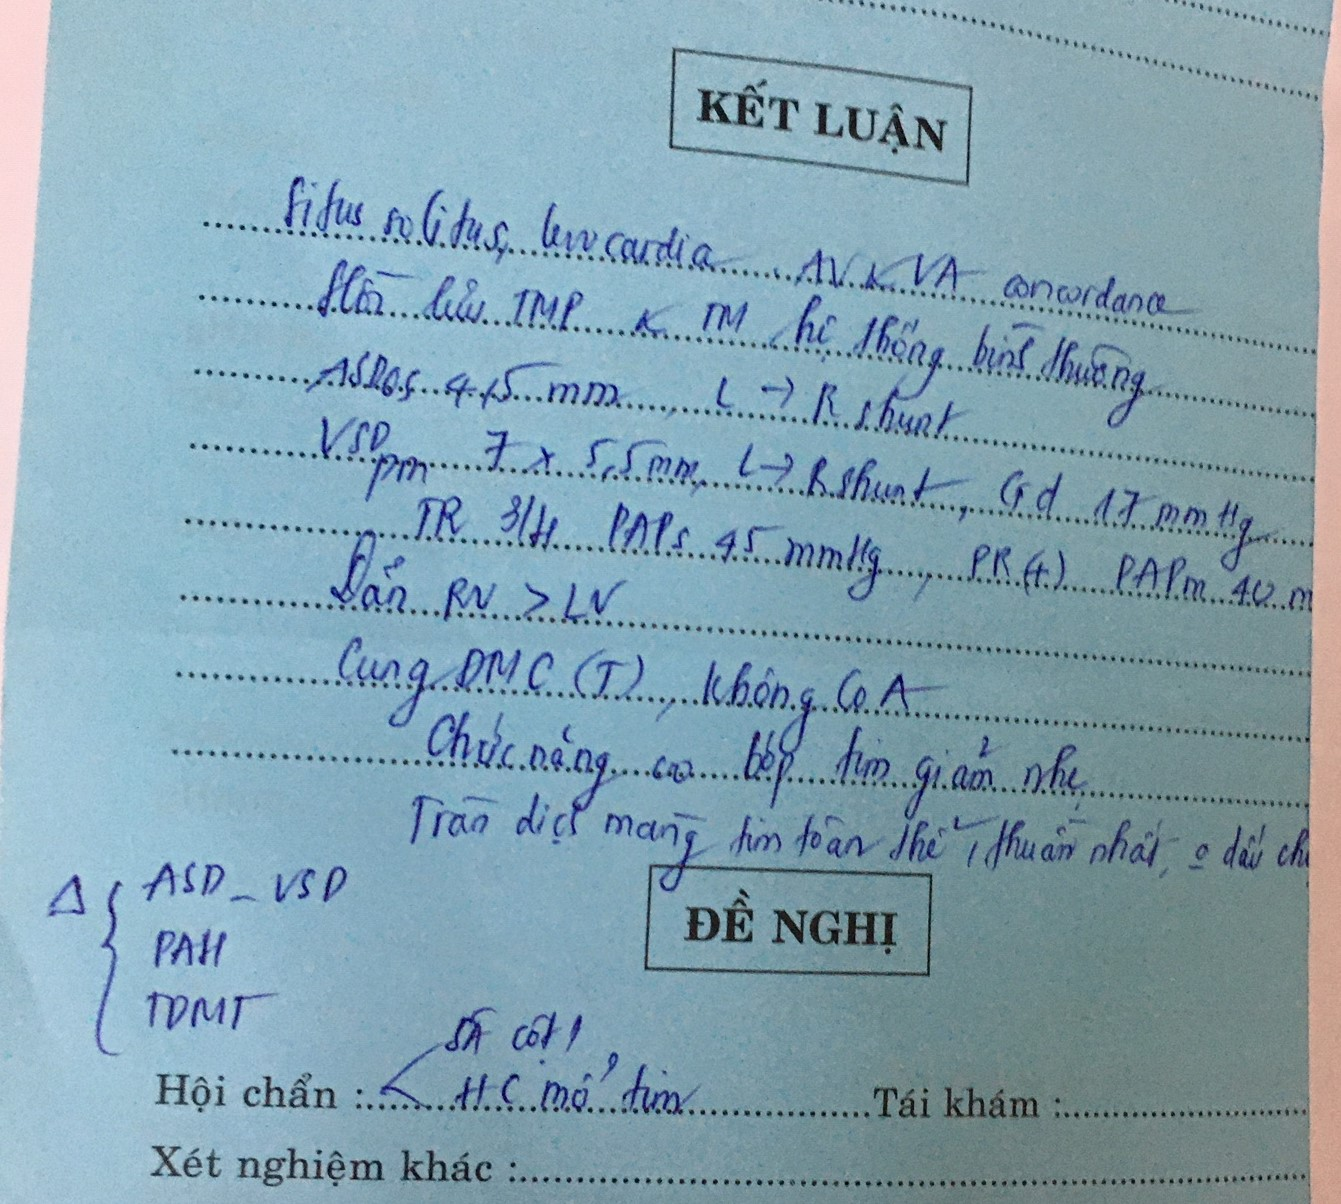 KẾT LUẬN
Situs solitus, levocardia AV & VA concordance
Hồi lưu TMP & TM hệ thống bình thường
ASDos 4,5 mm, L → R shunt
VSDpm 7 x 5,5 mm, L → R shunt, Gd 17 mmHg
TR 3/4 PAPs 45 mmHg, PR (+) PAPm 40 m
Dãn RV > LV
Cung ĐMC (T), không CoA
Chức năng co bóp tim giảm nhẹ
Tràn dịch màng tim toàn thể, thuần nhất, o dấu ch
Δ { ASD - VSD
PAH
TDMT
ĐỀ NGHỊ
SA cột 1
Hội chẩn : < HC mổ tim Tái khám :
Xét nghiệm khác :